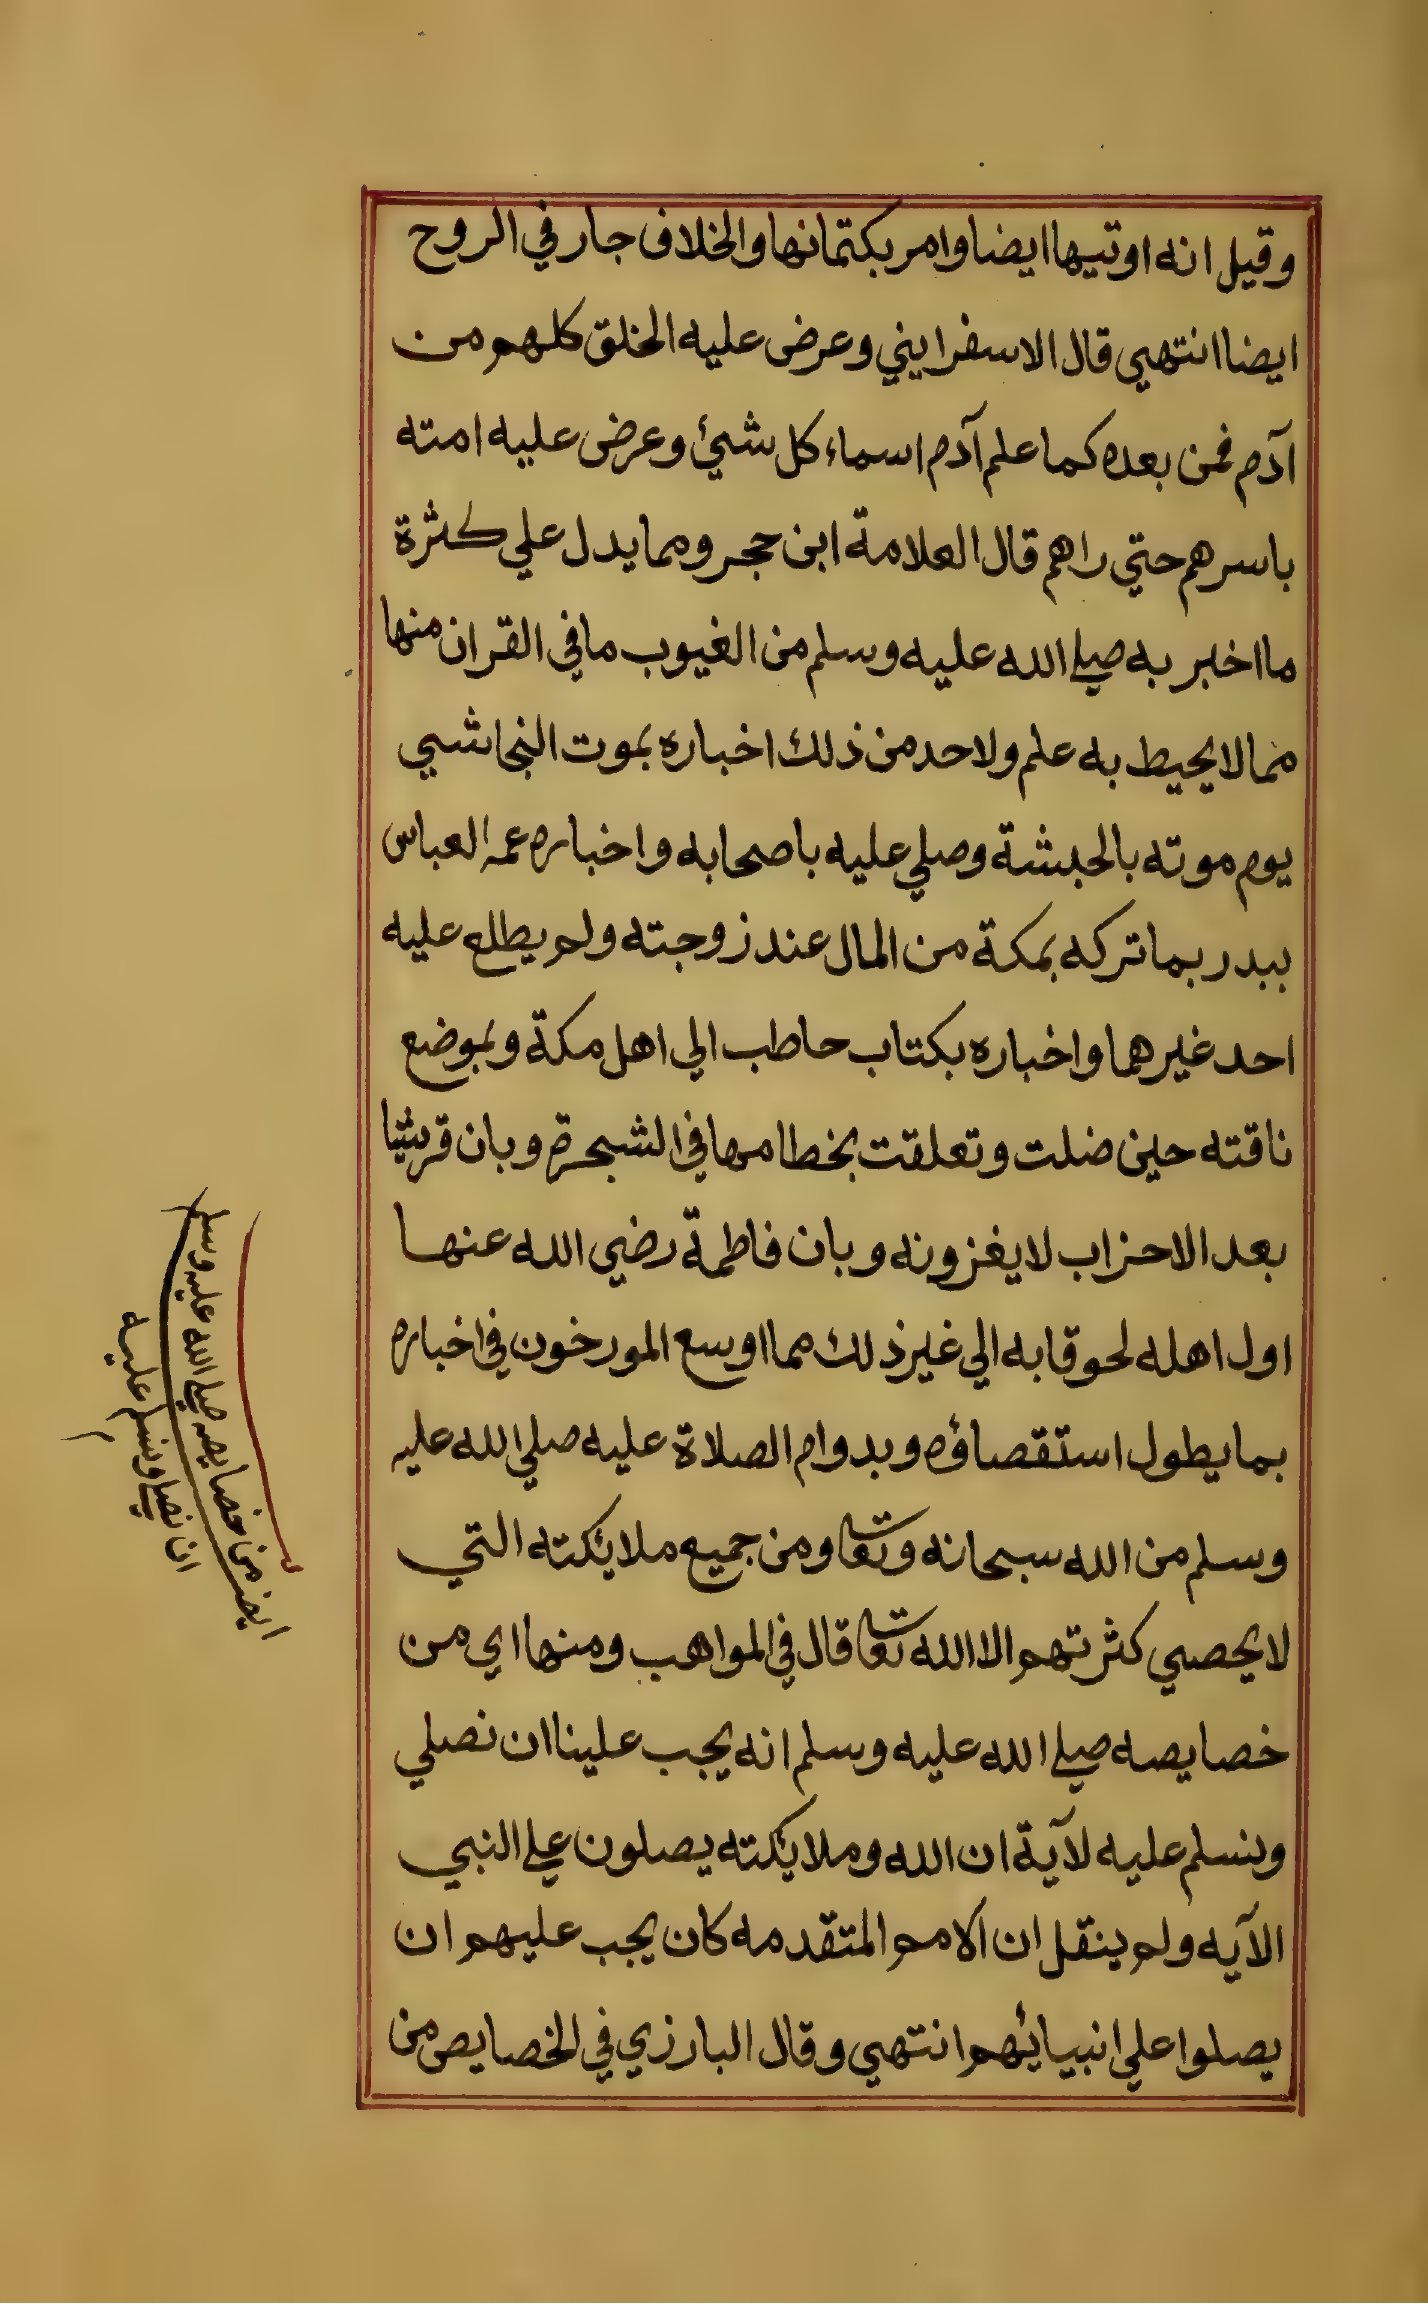 وقيل انه اوتيها ايضا وامر بكتمانها والخلاف جار في الروح
ايضا انتهي قال الاسفرايني وعرض عليه الخلق كلهم من
آدم فمن بعده كما علم آدم اسماء كل شيئ وعرض عليه امته
باسرهم حتي راهم قال العلامة ابن حجر ومما يدل علي كثرة
ما اخبر به صلي الله عليه وسلم من الغيوب ما في القران منها
مما لا يحيط به علم ولاحد من ذلك اخباره بموت النجاشي
يوم موته بالحبشة وصلي عليه باصحابه واخباره عمه العباس
ببدر بما تركه بمكة من المال عند زوجته ولم يطلع عليه
احد غيرهما واخباره بكتاب حاطب الي اهل مكة وبموضع
ناقته حين ضلت وتعلقت بخطامها في الشجرة وبان قريشا
بعد الاحزاب لا يغزونه وبان فاطمة رضي الله عنها
اول اهله لحوقا به الي غير ذلك مما اوسع المورخون في اخباره
بما يطول استقصاؤه وبدوام الصلاة عليه صلي الله عليه
وسلم من الله سبحانه وتعا ومن جميع ملائكته التي
لا يحصي كثرتهم الا الله تعا قال في المواهب ومنها اي من
خصايصه صلي الله عليه وسلم انه يجب علينا ان نصلي
ونسلم عليه لآية ان الله وملائكته يصلون علي النبي
الآيه ولم ينقل ان الامم المتقدمه كان يجب عليهم ان
يصلوا علي انبيائهم انتهي وقال البارزي في الخصايص من
ايضا من خصايصه صلي الله عليه وسلم
ان نصلي ونسلم عليه